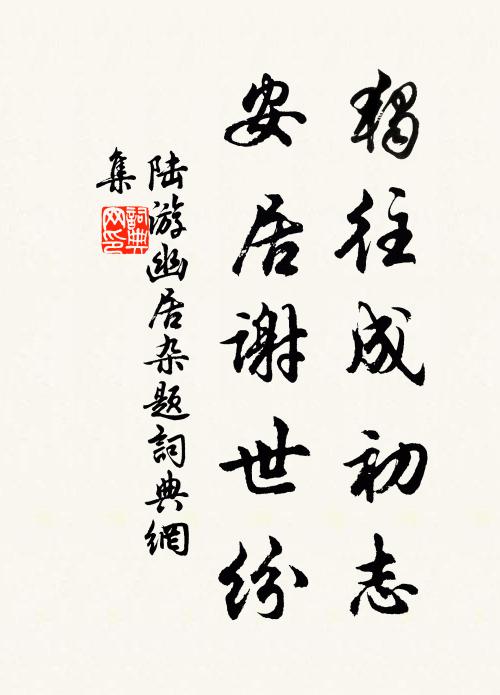 獨往成初志
安居謝世紛
陆游幽居杂题詞典網
集
詞典
网印